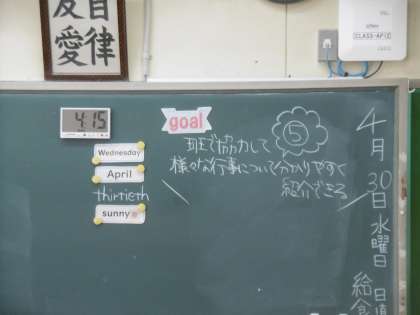 友 自
愛 律
CLASS-AP12
4:15
goal
⑤
Wednesday
April
thirtieth
sunny
班で協力して
様々な行事について分かりやすく
紹介できる
4月30日水曜日
給食
日直